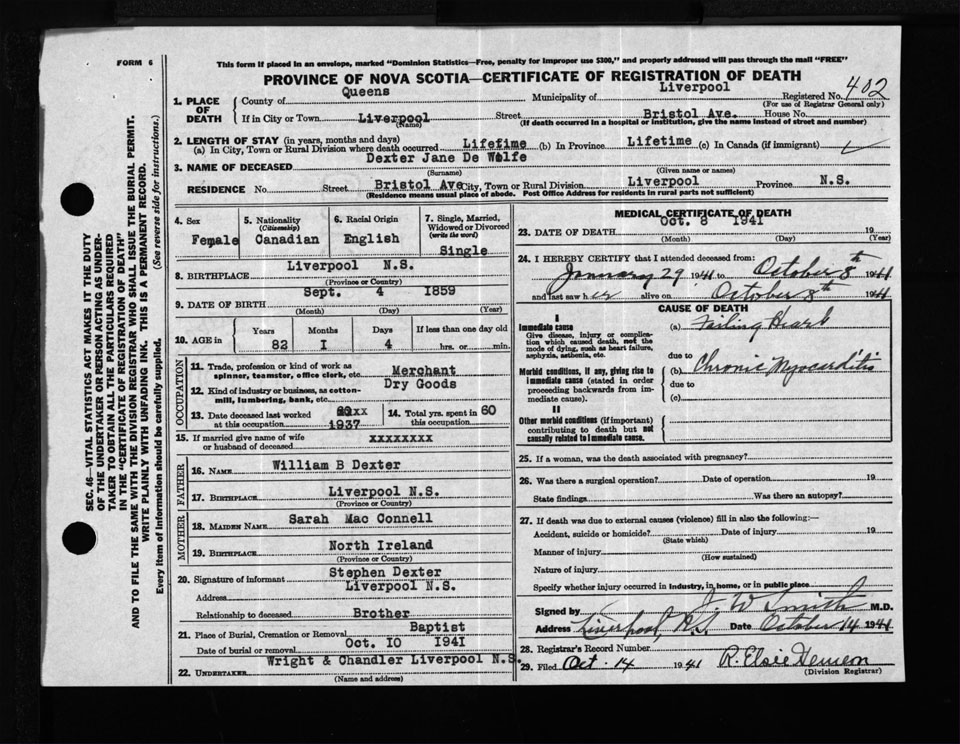 FORM 6
This form if placed in an envelope, marked "Dominion Statistics—Free, penalty for improper use $300," and properly addressed will pass through the mail "FREE"
PROVINCE OF NOVA SCOTIA—CERTIFICATE OF REGISTRATION OF DEATH
1. PLACE OF DEATH
County of Queens Municipality of Liverpool Registered No. 402
(For use of Registrar General only)
If in City or Town Liverpool Street Bristol Ave. House No.
(Name) (If death occurred in a hospital or institution, give the name instead of street and number)
2. LENGTH OF STAY (in years, months and days)
(a) In City, Town or Rural Division where death occurred Lifetime (b) In Province Lifetime (c) In Canada (if immigrant)
3. NAME OF DECEASED Dexter Jane De Wolfe
(Surname) (Given name or names)
RESIDENCE No. Street Bristol Ave City, Town or Rural Division Liverpool Province N.S.
(Residence means usual place of abode. Post Office Address for residents in rural parts not sufficient)
4. Sex Female
5. Nationality (Citizenship) Canadian
6. Racial Origin English
7. Single, Married, Widowed or Divorced (write the word) Single
8. BIRTHPLACE Liverpool N.S.
(Province or Country)
9. DATE OF BIRTH Sept. 4 1859
(Month) (Day) (Year)
10. AGE in Years Months Days If less than one day old
82 I 4 hrs. or min.
OCCUPATION
11. Trade, profession or kind of work as spinner, teamster, office clerk, etc. Merchant
12. Kind of industry or business, as cotton-mill, lumbering, bank, etc. Dry Goods
13. Date deceased last worked at this occupation 1937
14. Total yrs. spent in this occupation 60
15. If married give name of wife or husband of deceased xxxxxxxx
FATHER
16. NAME William B Dexter
17. BIRTHPLACE Liverpool N.S.
(Province or Country)
MOTHER
18. MAIDEN NAME Sarah Mac Connell
19. BIRTHPLACE North Ireland
(Province or Country)
20. Signature of informant Stephen Dexter
Address Liverpool N.S.
Relationship to deceased Brother
21. Place of Burial, Cremation or Removal Baptist
Date of burial or removal Oct. 10 1941
22. UNDERTAKER Wright & Chandler Liverpool N.S.
(Name and address)
MEDICAL CERTIFICATE OF DEATH
23. DATE OF DEATH Oct. 8 1941 19
(Month) (Day) (Year)
24. I HEREBY CERTIFY that I attended deceased from:
January 29 1941 to October 8th 1941
and last saw her alive on October 8th 1941
CAUSE OF DEATH
I
Immediate cause
Give disease, injury or complication which caused death, not the mode of dying, such as heart failure, asphyxia, asthenia, etc.
(a) Failing Heart
due to
Morbid conditions, if any, giving rise to immediate cause (stated in order proceeding backwards from immediate cause).
(b) Chronic Myocarditis
due to
(c)
II
Other morbid conditions (if important) contributing to death but not causally related to immediate cause.
25. If a woman, was the death associated with pregnancy?
26. Was there a surgical operation? Date of operation 19
State findings Was there an autopsy?
27. If death was due to external causes (violence) fill in also the following:—
Accident, suicide or homicide? Date of injury 19
(State which)
Manner of injury
(How sustained)
Nature of injury
Specify whether injury occurred in industry, in home, or in public place
Signed by J. W. Smith M.D.
Address Liverpool N.S. Date October 14 1941
28. Registrar's Record Number
29. Filed Oct. 14 1941 R. Elsie
(Division Registrar)
SEC. 46—VITAL STATISTICS ACT MAKES IT THE DUTY
OF THE UNDERTAKER OR PERSON ACTING AS UNDER-
TAKER TO OBTAIN ALL THE PARTICULARS REQUIRED
IN THE "CERTIFICATE OF REGISTRATION OF DEATH"
AND TO FILE THE SAME WITH THE DIVISION REGISTRAR WHO SHALL ISSUE THE BURIAL PERMIT.
WRITE PLAINLY WITH UNFADING INK. THIS IS A PERMANENT RECORD.
Every item of information should be carefully supplied. (See reverse side for instructions.)